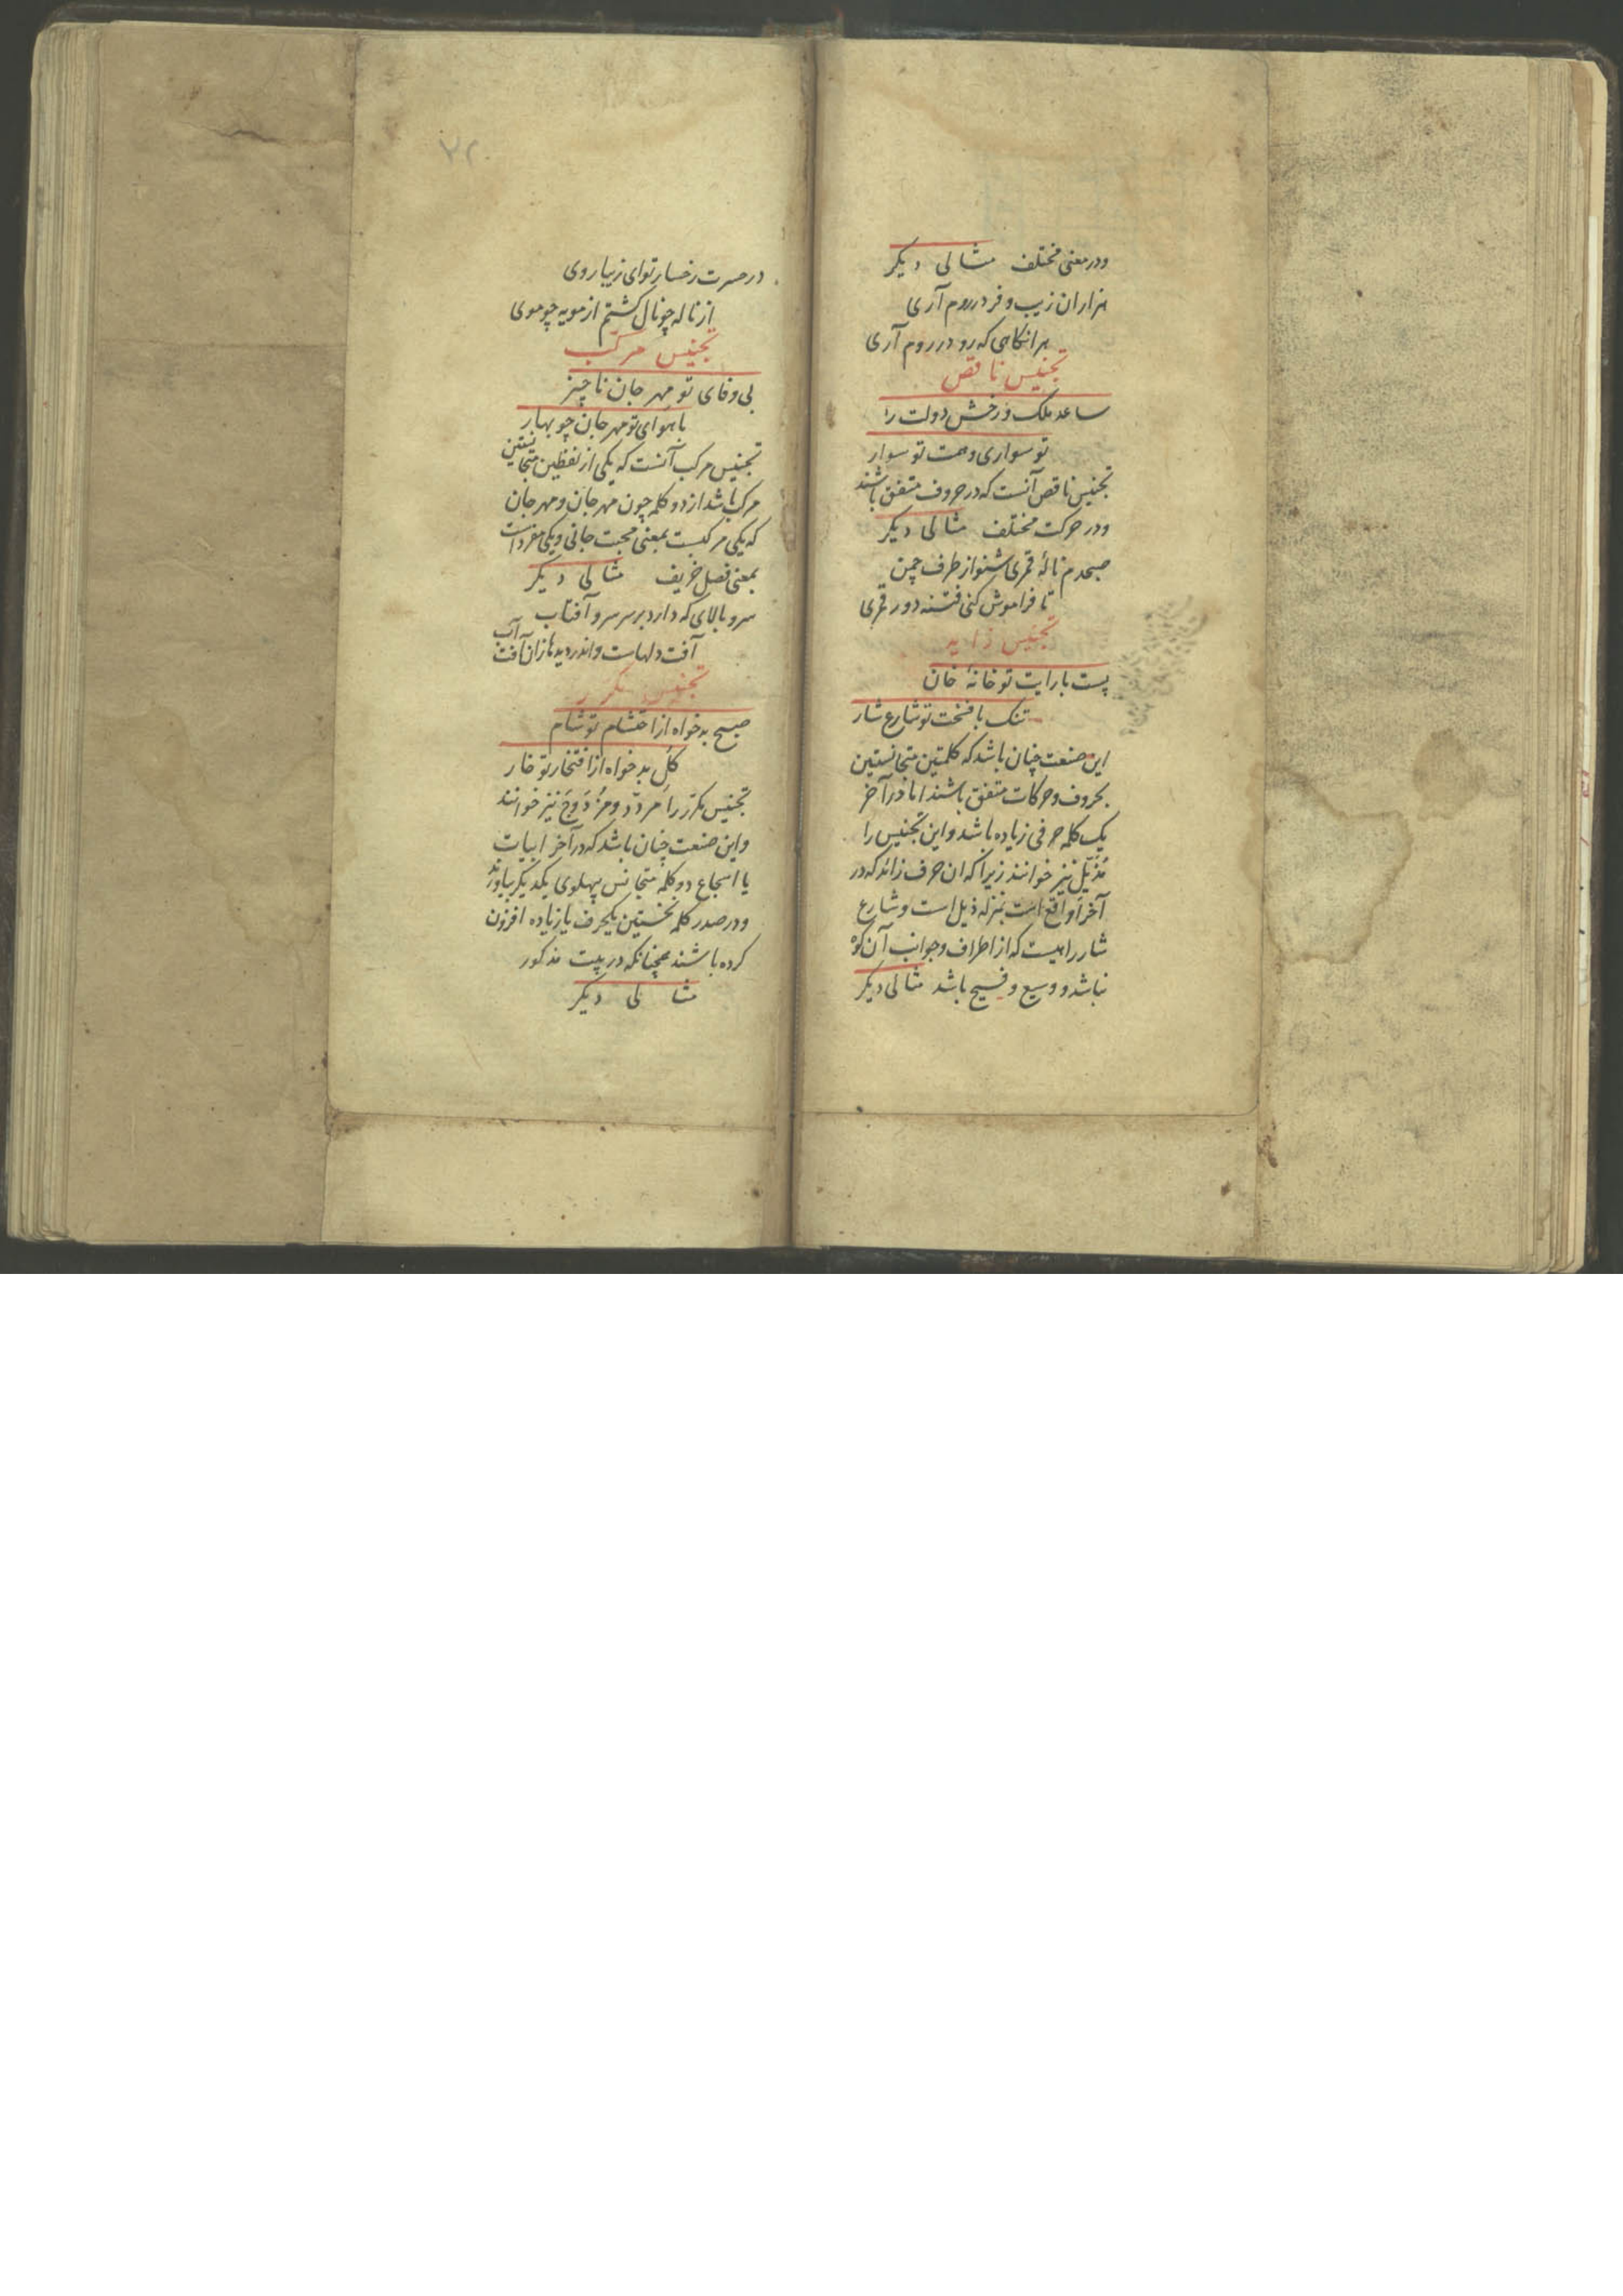 ودر معنی مختلف مثالی دیگر
هزاران زیب و فر در روم آری
هر انگاهی که رو در روم آری
تجنیس ناقص
ساعد ملک و رخش دولت را
تو سواری و همت تو سوار
تجنیس ناقص آنست که در حروف متفق باشند
ودر حرکت مختلف مثالی دیگر
صبحدم نالهٔ قمری شنو از طرف چمن
تا فراموش کنی فتنه دور قمری
تجنیس زاید
پست با رایت تو خانهٔ خان
تنک با فسحت تو شارع شار
این صنعت چنان باشد که کلمتین متجانستین
بحروف و حرکات متفق باشند اما در آخر
یک کلمه حرفی زیاده باشد و این تجنیس را
مُذَیَّل نیز خوانند زیرا که ان حرف زائد که در
آخر واقع است بمنزله ذیل است و شارع
شارراهیست که از اطراف و جوانب آن کوه
نباشد و وسیع و فسیح باشد مثالی دیگر
۷۲
در حسرت رخسار تو ای زیبا روی
از ناله چو نال کشتم از مویه چو موی
تجنیس مرکب
بی وفای تو مهر جان ناچیز
با هوای تو مهرجان چو بهار
تجنیس مرکب آنست که یکی از لفظین متجانستین
مرکب باشد از دو کلمه چون مهر جان و مهرجان
که یکی مرکبست بمعنی محبت جانی و یکی مفرد است
بمعنی فصل خریف مثالی دیگر
سرو بالای که دارد بر سر سرو آفتاب
آفت دلهاست و اندر دیدها زان آفت آب
تجنیس مکرر
صبح بدخواه از احتشام تو شام
کل بدخواه از افتخار تو خار
تجنیس مکرر را مردّد و مزدوج نیز خوانند
و این صنعت چنان باشد که در آخر ابیات
یا اسجاع دو کلمه متجانس پهلوی یکدیکر بیاورند
و در صدر کلمه نخستین یکحرف یا زیاده افزون
کرده باشند همچنانکه در بیت مذکور
مثالی دیگر